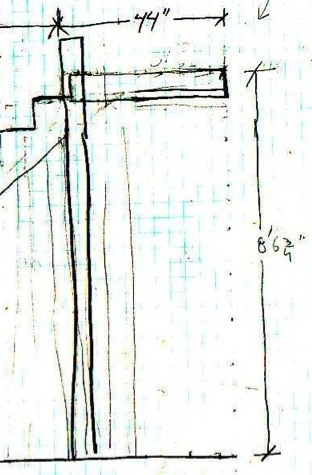 44"
8'6 3/4"